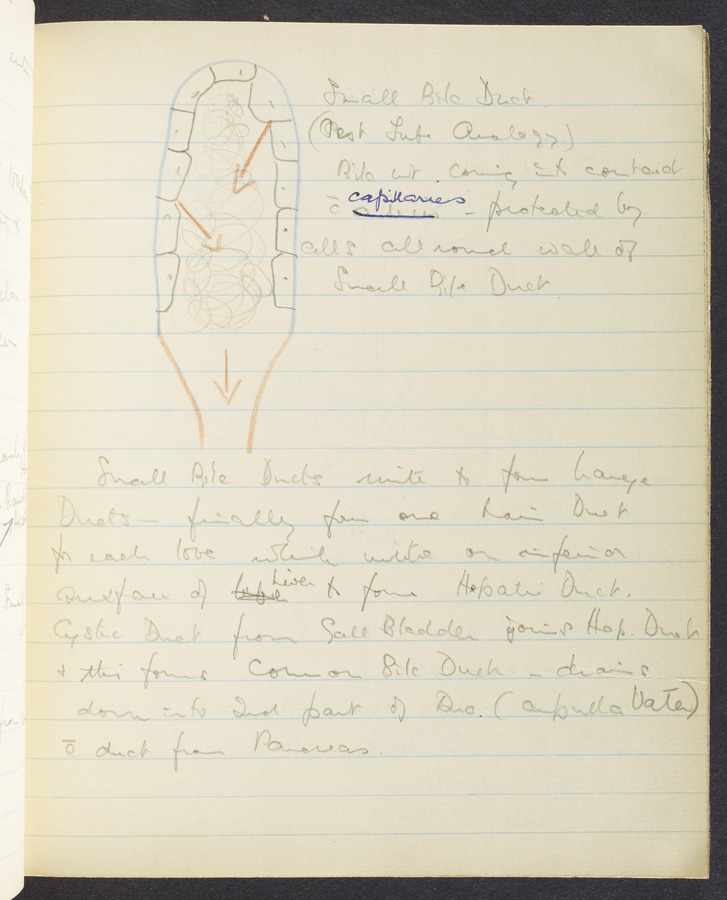 Small Bile Duct.
(Test Tube Analogy)
Bile not coming into contact
c̄ capillaries - protected by
cells all round wall of
Small Bile Duct
Small Bile Ducts unite to form larger
Ducts - finally form one main Duct
to each lobe which unite on inferior
surface of Liver to form Hepatic Duct.
Cystic Duct from Gall Bladder joins Hep. Duct
& this forms Common Bile Duct - drains
down into 2nd part of Duo. (ampulla Vater)
c̄ duct from Pancreas.